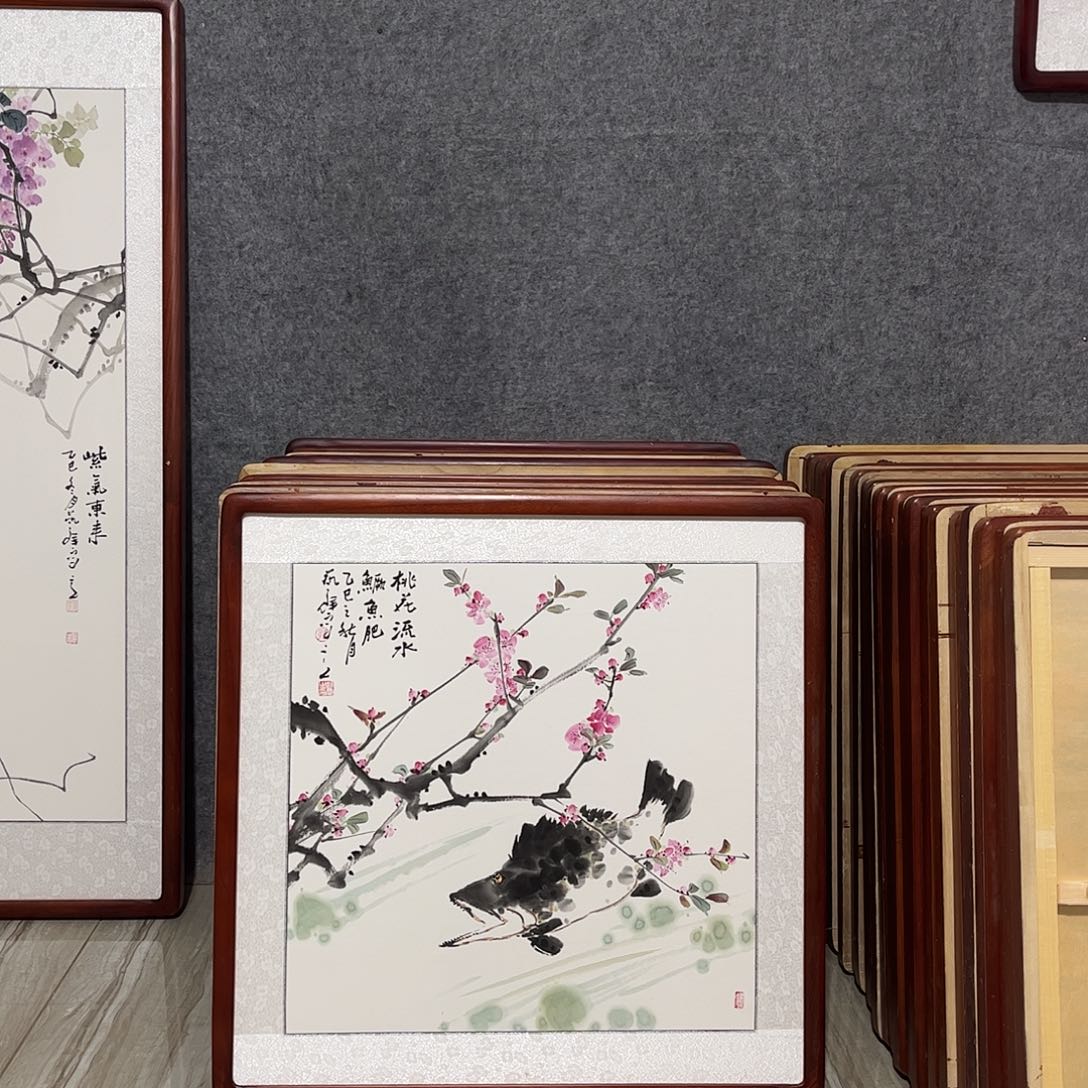 紫氣東来
乙巳冬月
桃花流水
鱖魚肥
乙巳之秋月